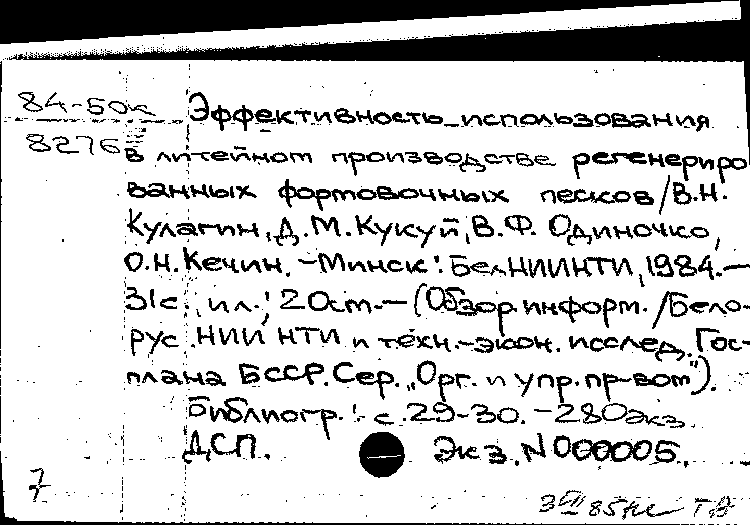 84-50к
8276
Эффективность использования
в литейном производстве регенериро
ванных формовочных песков/В.Н.
Кулагин, Д.М.Кукуй, В.Ф. Одиночко,
О.Н.Кечин. - Минск: БелНИИНТИ, 1984.-
31с., ил.; 20см.-(Обзор.информ./Бело-
рус.НИИ НТИ и техн.-экон. исслед. Гос-
плана БССР. Сер. "Орг. и упр. пр-вом").
Библиогр.: с.29-30. - 280экз.
ДСП. Экз. N 000005.
7